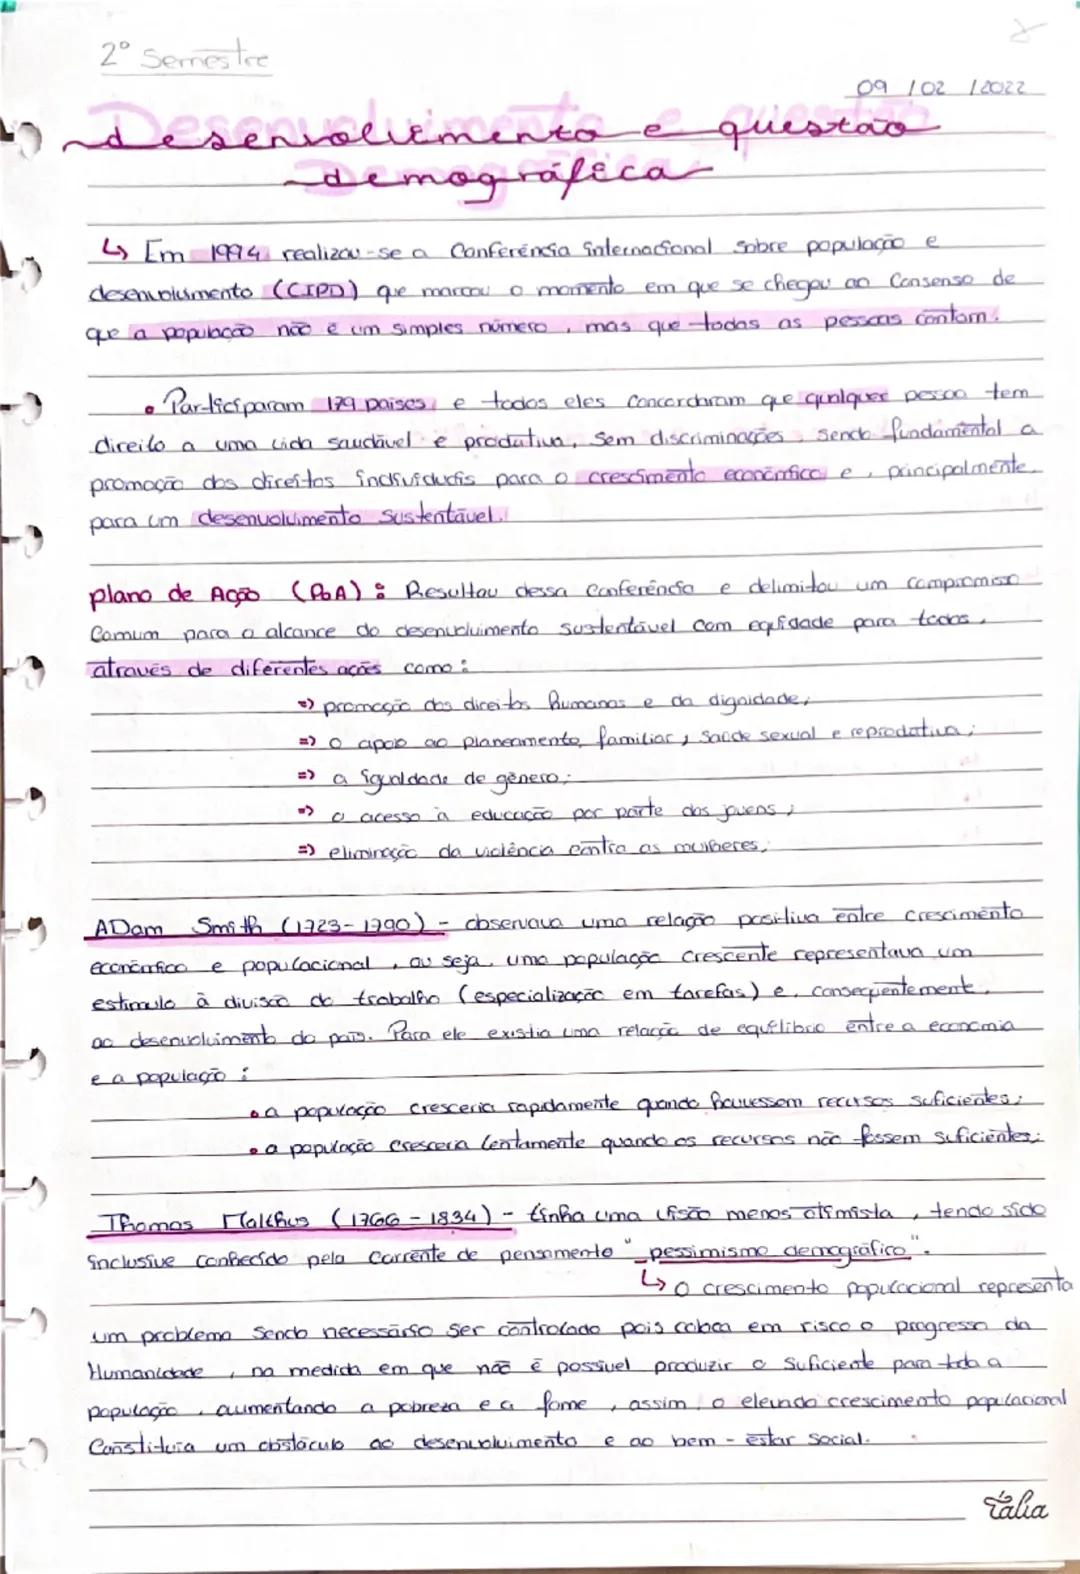 2º Semestre
09 / 02 / 2022
desenvolvimento e questão
demográfica
↳ Em 1994 realizou-se a Conferência internacional sobre população e
desenvolvimento (CIPD) que marcou o momento em que se chegou ao Consenso de
que a população não é um simples número, mas que todas as pessoas contam.
• Participaram 179 países e todos eles concordaram que qualquer pessoa tem
direito a uma vida saudável e produtiva, sem discriminações, sendo fundamental a
promoção dos direitos individuais para o crescimento económico e, principalmente
para um desenvolvimento sustentável.
plano de Ação (PoA): Resultou dessa Conferência e delimitou um compromisso
Comum para o alcance do desenvolvimento sustentável com equidade para todos,
através de diferentes ações como:
=> promoção dos direitos humanos e da dignidade;
=> o apoio ao planeamento familiar, saúde sexual e reprodutiva;
=> a igualdade de género;
=> o acesso à educação por parte dos jovens;
=> eliminação da violência contra as mulheres;
ADam Smith (1723-1790) - observava uma relação positiva entre crescimento
económico e populacional, ou seja, uma população crescente representava um
estimulo à divisão do trabalho (especialização em tarefas) e, consequentemente,
ao desenvolvimento do país. Para ele existia uma relação de equilíbrio entre a economia
e a população:
• a população cresceria rapidamente quando houvessem recursos suficientes;
• a população cresceria lentamente quando os recursos não fossem suficientes;
Thomas Malthus (1766-1834) - tinha uma visão menos otimista, tendo sido
inclusive conhecido pela corrente de pensamento "pessimismo demográfico".
↳ O crescimento populacional representa
um problema sendo necessário ser controlado pois coloca em risco o progresso da
Humanidade, na medida em que não é possível produzir o suficiente para toda a
população, aumentando a pobreza e a fome, assim, o elevado crescimento populacional
Constituia um obstáculo ao desenvolvimento e ao bem-estar social.
Tália